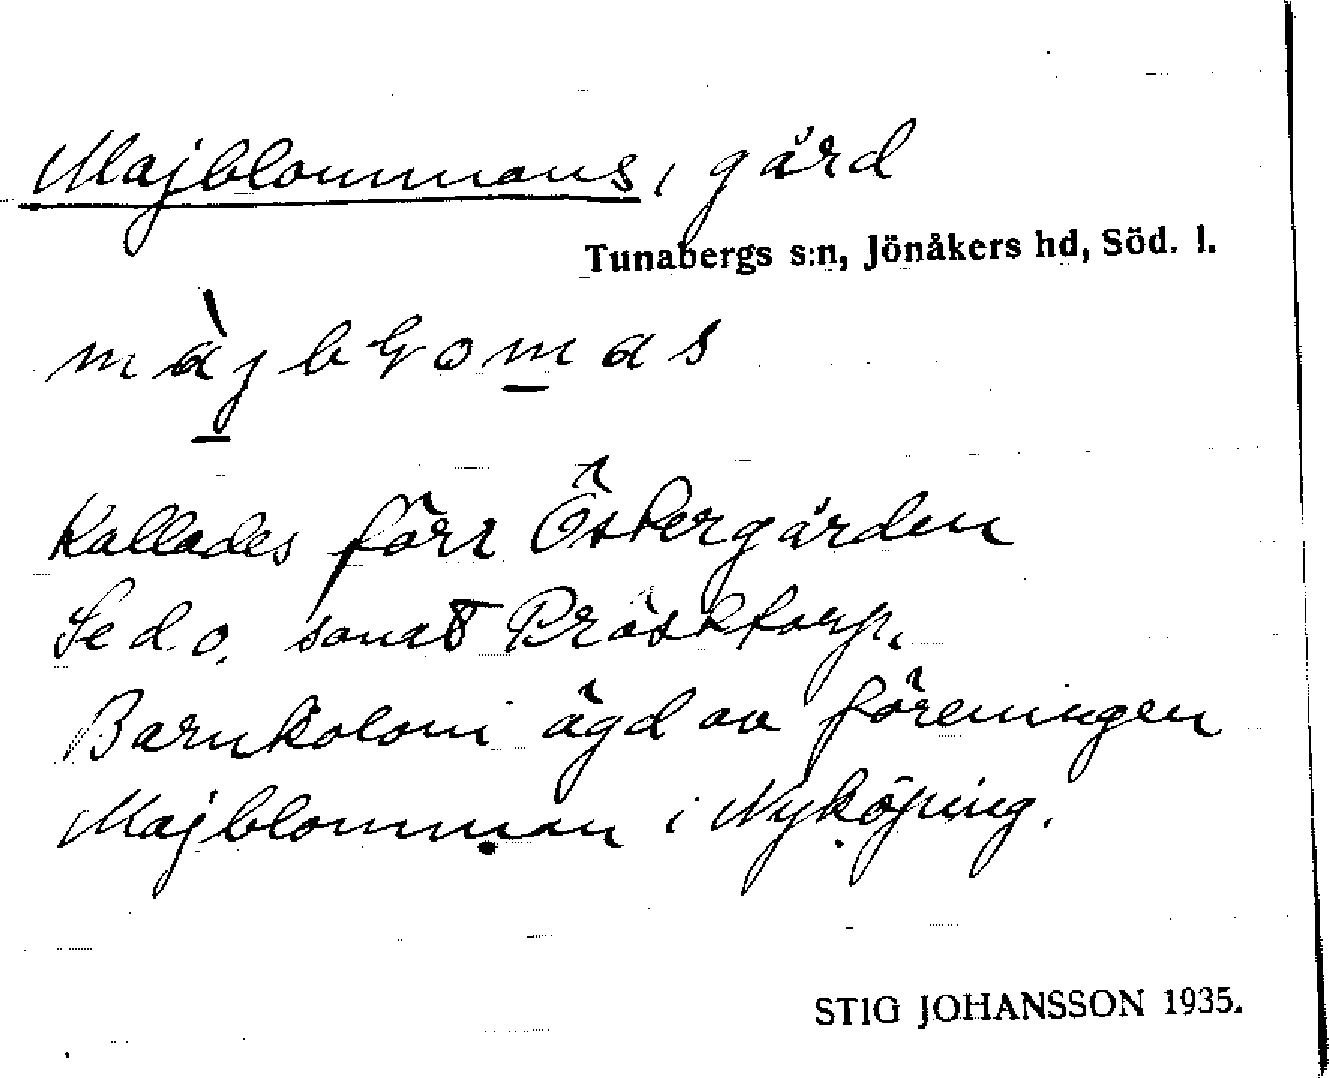 Majblommans, gård
Tunabergs s:n, Jönåkers hd, Söd. l.
màjbɬomas
Kallades förr Östergården
Se d. o. samt Prästtorp.
Barnkoloni ägd av föreningen
Majblomman i Nyköping.
STIG JOHANSSON 1935.